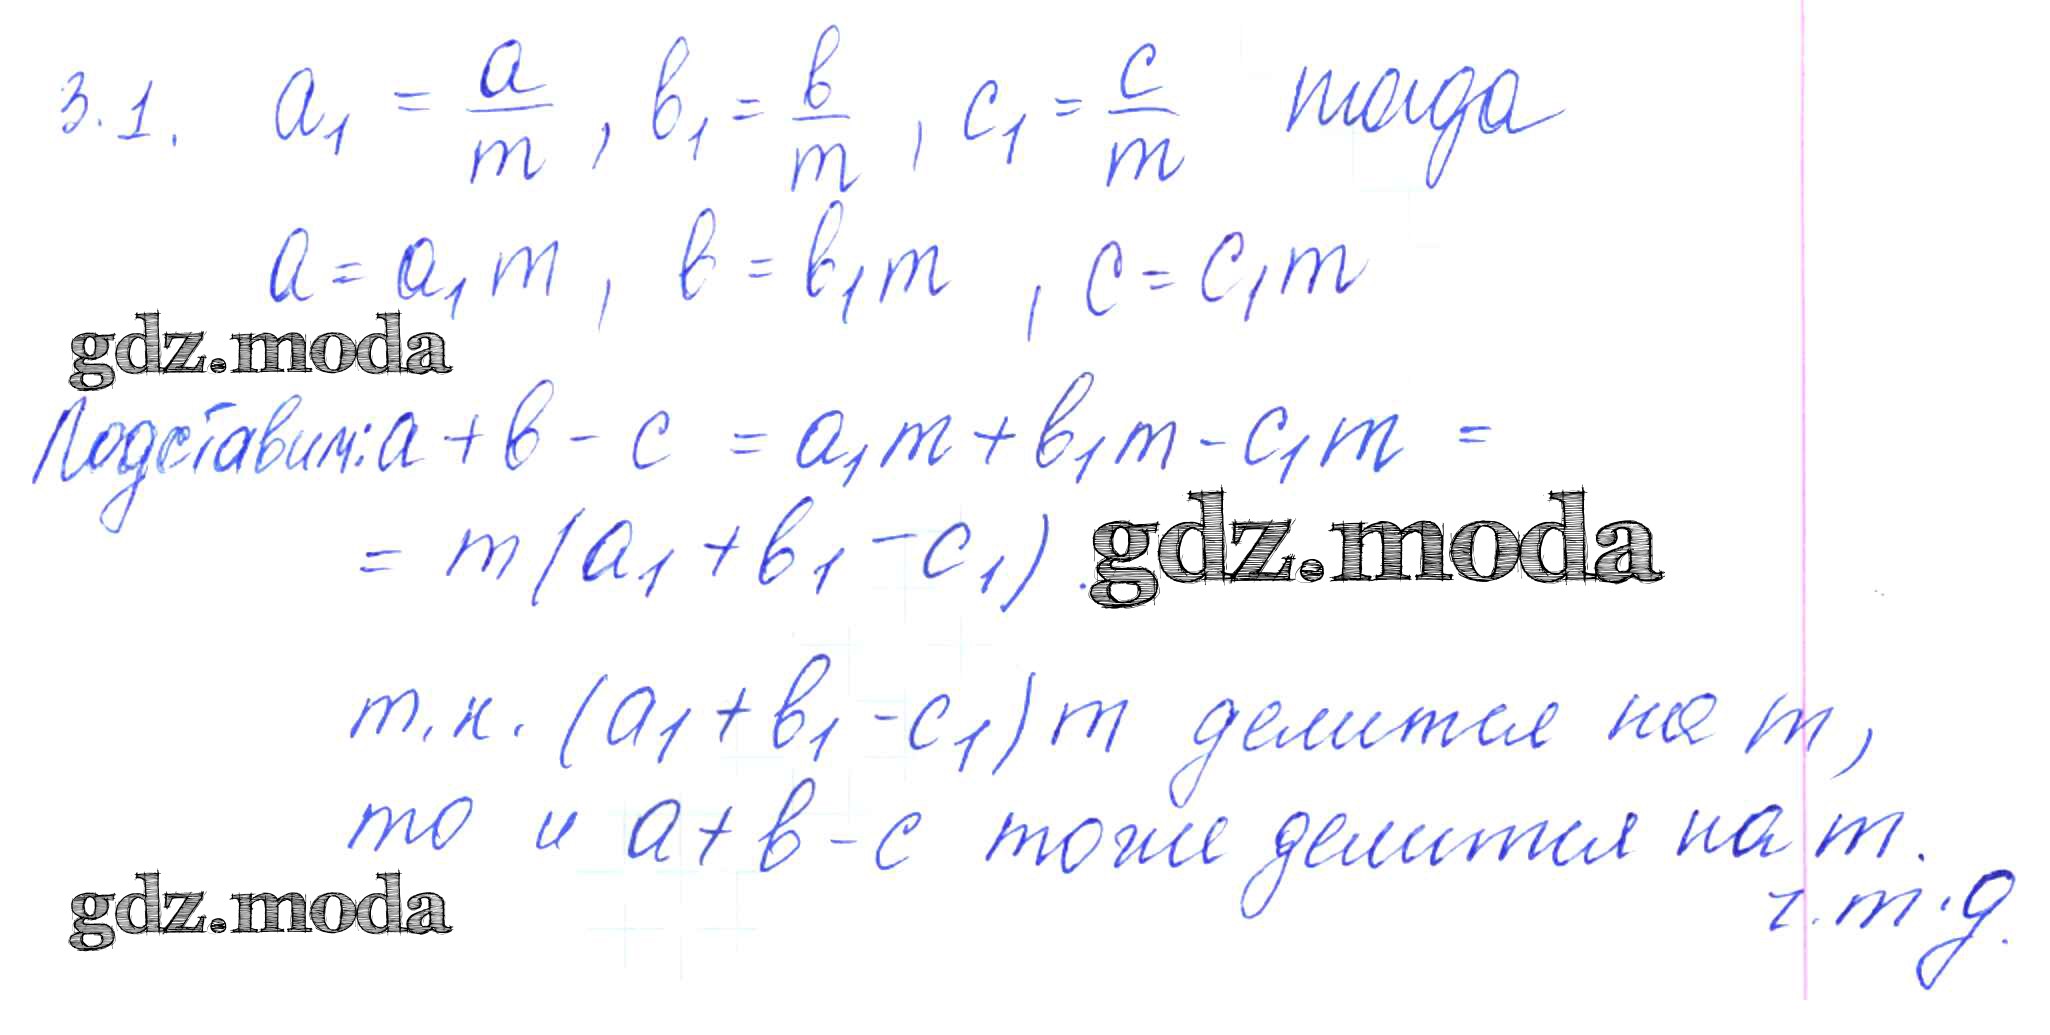 3.1. a₁ = a/m, в₁ = в/m, c₁ = c/m тогда
a = a₁m, в = в₁m, c = c₁m
gdz.moda
Подставим: a + в - c = a₁m + в₁m - c₁m =
= m(a₁ + в₁ - c₁).
gdz.moda
т.к. (a₁ + в₁ - c₁)m делится на m,
то и a + в - c тоже делится на m.
gdz.moda
ч.т.д.